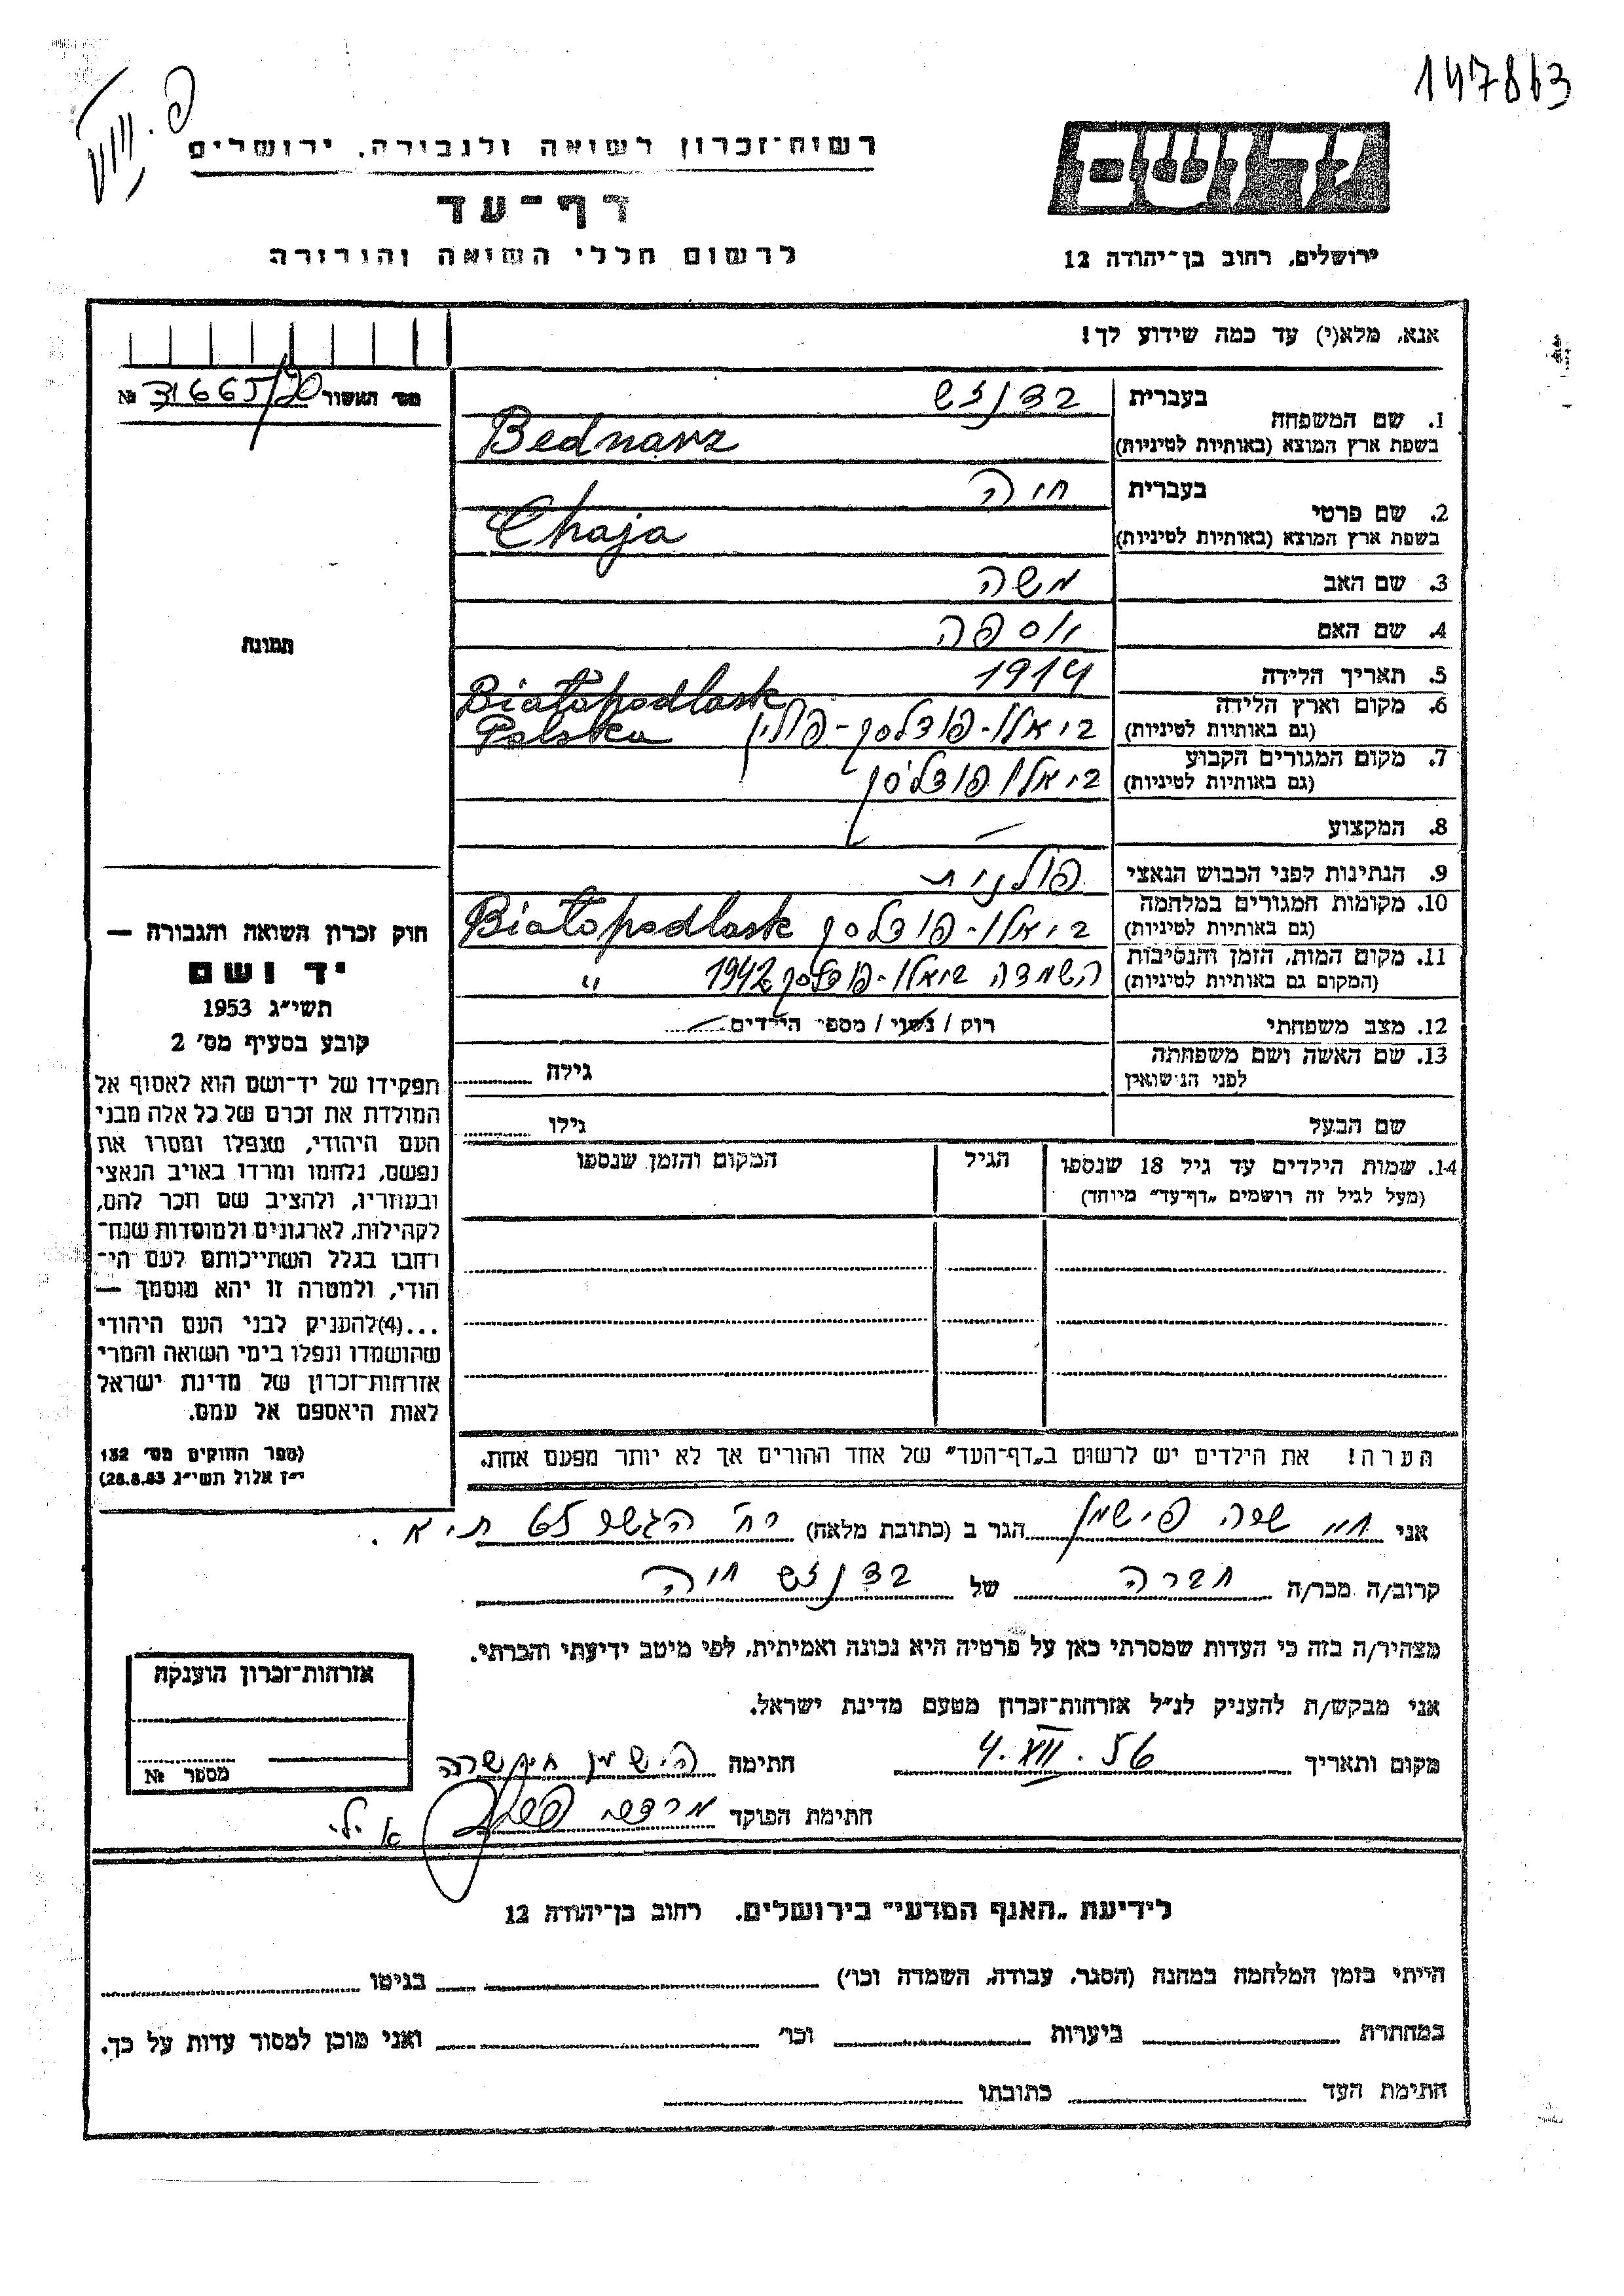 147863
רשות־זכרון לשואה ולגבורה, ירושלים
דף־עד
לרשום חללי השואה והגבורה
יד ושם
ירושלים, רחוב בן־יהודה 12
אנא, מלא(י) עד כמה שידוע לך!
מס׳ האשור 31665/20 №
1. שם המשפחה בעברית בדנז׳ש
בשפת ארץ המוצא (באותיות לטיניות) Bednarz
2. שם פרטי בעברית חיה
בשפת ארץ המוצא (באותיות לטיניות) Chaja
3. שם האב משה
4. שם האם
5. תאריך הלידה 1914
6. מקום וארץ הלידה Białopodlask
(גם באותיות לטיניות) ביאלו-פודלסק-פולין Polska
7. מקום המגורים הקבוע
(גם באותיות לטיניות) ביאלו פודלסק
8. המקצוע —
9. הנתינות לפני הכבוש הנאצי פולנית
10. מקומות המגורים במלחמה
(גם באותיות לטיניות) ביאלו-פודלסק Białopodlask
11. מקום המות, הזמן והנסיבות
(המקום גם באותיות לטיניות) השמדה ביאלו-פודלסק 1942 "
12. מצב משפחתי רוק / נשוי / מספר הילדים
13. שם האשה ושם משפחתה
לפני הנשואין גילה
שם הבעל גילו
14. שמות הילדים עד גיל 18 שנספו הגיל המקום והזמן שנספו
(מעל לגיל זה רושמים „דף־עד״ מיוחד)
הערה! את הילדים יש לרשום ב„דף־העד״ של אחד ההורים אך לא יותר מפעם אחת.
תמונה
חוק זכרון השואה והגבורה —
יד ושם
תשי״ג 1953
קובע בסעיף מס׳ 2
תפקידו של יד־ושם הוא לאסוף אל
המולדת את זכרם של כל אלה מבני
העם היהודי, שנפלו ומסרו את
נפשם, נלחמו ומרדו באויב הנאצי
ובעוזריו, ולהציב שם וזכר להם,
לקהילות, לארגונים ולמוסדות שנח־
רבו בגלל השתייכותם לעם הי־
הודי, ולמטרה זו יהא מוסמך —
...(4) להעניק לבני העם היהודי
שהושמדו ונפלו בימי השואה והמרי
אזרחות־זכרון של מדינת ישראל
לאות היאספם אל עמם.
(ספר החוקים מס׳ 132
י״ז אלול תשי״ג 28.8.53)
אני שרה פישמן הגר ב (כתובת מלאה) רח׳ ת״א.
קרוב/ה מכר/ה חברה של בדנז׳ש חיה
מצהיר/ה בזה כי העדות שמסרתי כאן על פרטיה היא נכונה ואמיתית, לפי מיטב ידיעתי והכרתי.
אני מבקש/ת להעניק לנ״ל אזרחות־זכרון מטעם מדינת ישראל.
מקום ותאריך 4.XII.56 חתימה פישמן שרה
חתימת הפוקד
אזרחות־זכרון הוענקה
מספר №
לידיעת „האגף המדעי״ בירושלים, רחוב בן־יהודה 12
הייתי בזמן המלחמה במחנה (הסגר, עבודה, השמדה וכו׳) בגיטו
במחתרת ביערות וכו׳ ואני מוכן למסור עדות על כך.
חתימת העד כתובתו